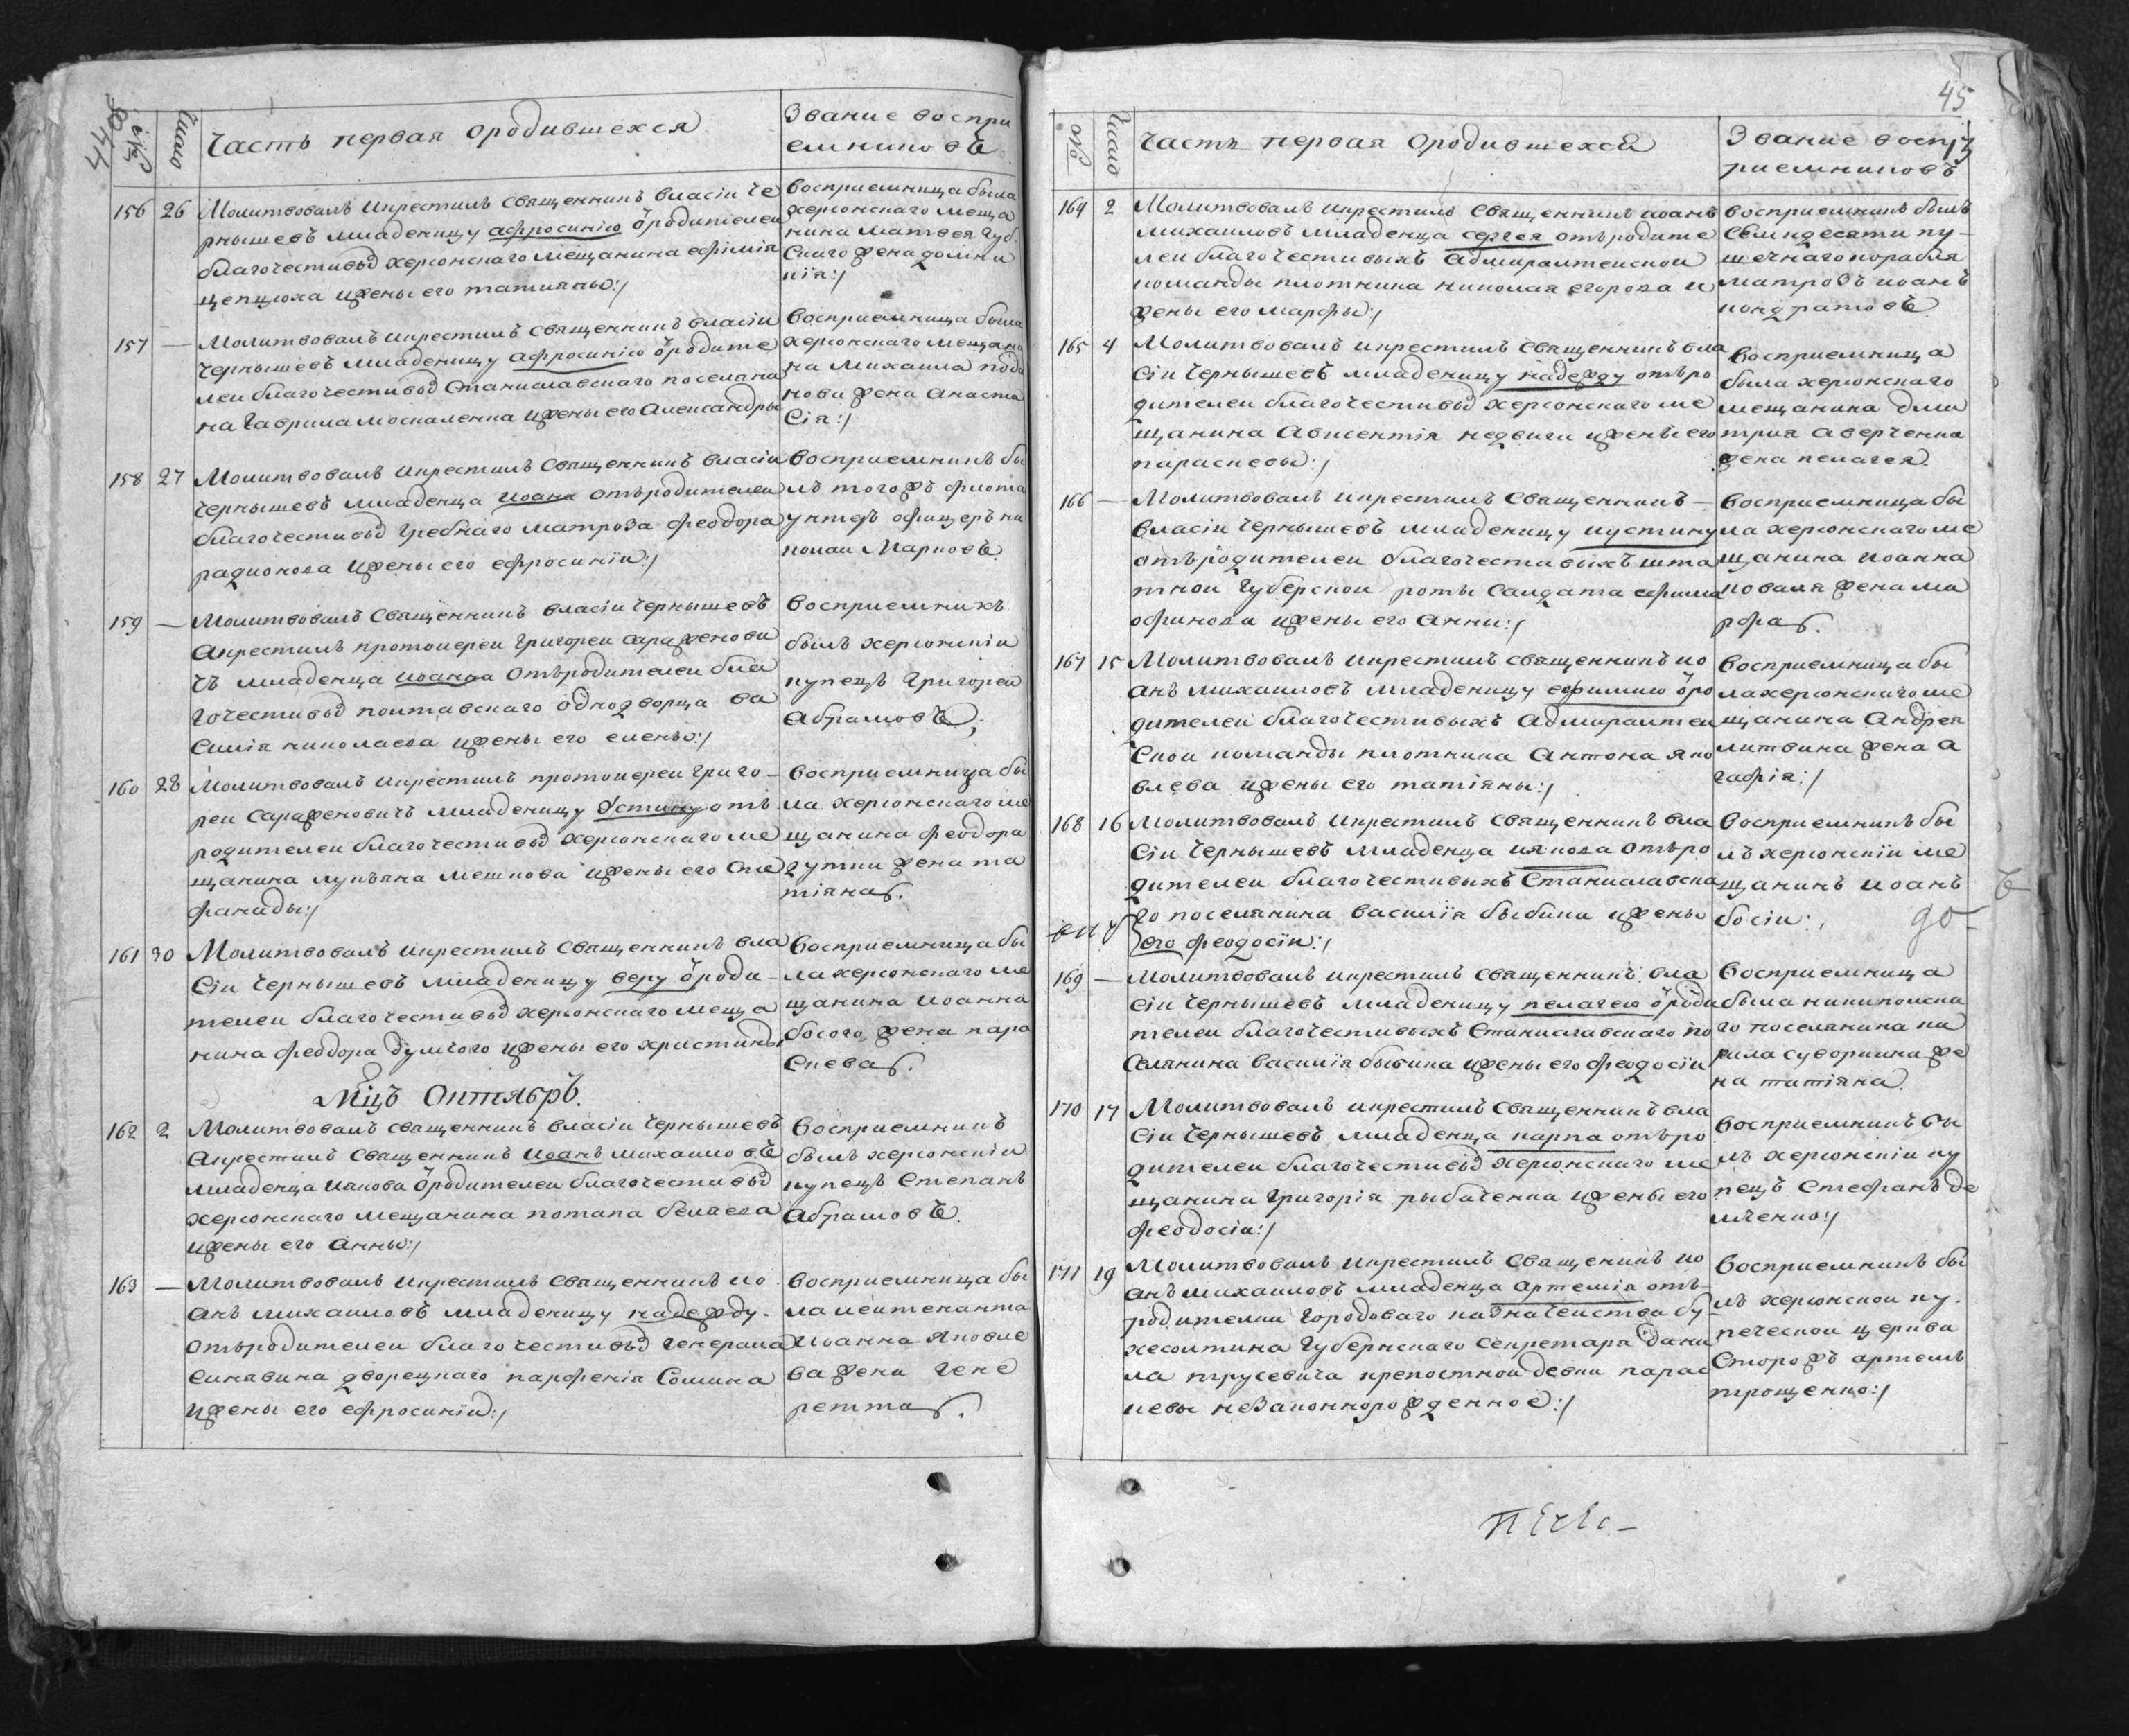 440
№
Число
Часть первая ородившехся
Звание воспри
емниковъ
156 26 Молитвовалъ икрестилъ священникъ власіи че
рнышевъ младеницу афросинію ѿродителеи
благочестивыд херсонскаго мещанина ефімія
щепцюха ижены его татияны:/
восприемница была
херсонскаго меща
нина матвея губ
скаго жена домни
кія:/
157 — Молитвовалъ икрестилъ священникъ власіи
чернышевъ младеницу афросинію ѿродите
леи благочестивыд станиславскаго поселяни
на гаврила москаленка ижены его александры
восприемница была
херсонскаго мещани
на михаила подо
нови жена анаста
сія:/
158 27 Молитвовалъ икрестилъ священникъ власіи
чернышевъ младенца иоана отъродителеи
благочестивыд гребнаго матроза феодора
радионова ижены его ефросиніи:/
восприемникъ бы
лъ тогожъ флота
унтеръ офицеръ ни
колаи Марковъ
159 — Молитвовалъ священникъ власіи чернышевъ
акрестилъ протоиереи григореи сараженови
чъ младенца иоанна отъродителеи бла
гочестивыд полтавскаго однодворца ва
силія николаева ижены его елены:/
восприемникъ
былъ херсонскіи
купецъ григореи
абрамовъ;
160 28 Молитвовалъ икрестилъ протоиереи григо-
реи сараженовичъ младеницу устину отъ
родителеи благочестивыд херсонскаго ме
щанина лукъяна мешкова ижены его сте
фаниды:/
восприемница бы
ла херсонскаго ме
щанина феодора
гутки жена та
тіяна.
161 30 Молитвовалъ икрестилъ священникъ вла
сіи чернышевъ младеницу веру ѿроди-
телеи благочестивыд херсонскаго меща
нина феодора думчого ижены его христины
восприемница бы
ла херсонскаго ме
щанина иоанна
босого, жена пара
скева.
Мцъ Октябрь.
162 2 Молитвовалъ священникъ власіи чернышевъ
акрестилъ священникъ иоанъ михаиловъ
младенца иакова ѿродителеи благочестивыд
херсонскаго мещанина потапа беляева
ижены его анны:/
восприемникъ
былъ херсонскіи
купецъ степанъ
абрамовъ.
163 — Молитвовалъ икрестилъ священникъ ио
анъ михаиловъ младеницу надежду.
отъродителеи благочестивыд генерала
синявина дворецкаго парфенія сомина
ижены его ефросиніи:/
восприемница бы
ла леитенанта
иоанна яковле
ва жена гене
ретта.
45
№
Число
Часть первая ородившехся
Звание восп
риемниковъ
164 2 Молитвовалъ икрестилъ священникъ иоанъ
михаиловъ младенца сергея отъродите
леи благочестивыхъ адмиралтеискои
команды плотника николая егорова и
жены его марфы:/
восприемникъ былъ
семидесяти пу-
шечнаго корабля
матрозъ иоанъ
кондратовъ
165 4 Молитвовалъ икрестилъ священникъ вла
сіи чернышевъ младеницу надежду отъро
дителеи благочестивыд херсонскаго ме
щанина авксентія недвиги ижены его
параскевы:/
восприемница
была херсонскаго
мещанина дми
трия аверченка
жена пелагея.
166 — Молитвовалъ икрестилъ священникъ —
власіи чернышевъ младеницу иустину
отъродителеи благочестивыхъ шта
тнои губерскои роты салдата ефима
офинова ижены его анны:/
восприемница бы
ла херсонскаго ме
щанина иоанна
коваля жена ма
рфа.
167 15 Молитвовалъ икрестилъ священникъ ио
анъ михаиловъ младеницу ефимию ѿро
дителеи благочестивыхъ адмиралтеи
скои команды плотника антона яко
влева ижены его татіяны:/
восприемница бы
ла херсонскаго ме
щанина андрея
литвина жена а
гафія:/
168 16 Молитвовалъ икрестилъ священникъ вла
сіи чернышевъ младенца иякова отъро
дителеи благочестивыхъ станиславска
го поселянина василія бывика ижены
его феодосіи:/
восприемникъ бы
лъ херсонскіи ме
щанинъ иоанъ
босіи:,
169 — Молитвовалъ икрестилъ священникъ вла
сіи чернышевъ младеницу пелагею ѿроди
телеи благочестивыхъ станиславскаго по
селянина василія бывика ижены его феодосіи
восприемница
была кикипоиска
го поселянина ки
рила суворкина же
на татіяна.
170 17 Молитвовалъ икрестилъ священникъ вла
сіи чернышевъ младенца карпа отъро
дителеи благочестивыд херсонскаго ме
щанина григорія рыбаченка ижены его
феодосіи:/
восприемникъ бы
лъ херсонскіи ку
пецъ стефанъ де
мченко:/
171 19 Молитвовалъ икрестилъ священикъ ио
анъ михаиловъ младенца артемія отъ
родителки городоваго казначеиства бу
хгалтира губернскаго секретаря дани
ла трусевича крепостнои девки парас
кевы незаконнорожденное:/
восприемникъ бы
лъ херсонскои ку
печескои церкви
сторожъ артемъ
трощенко:/